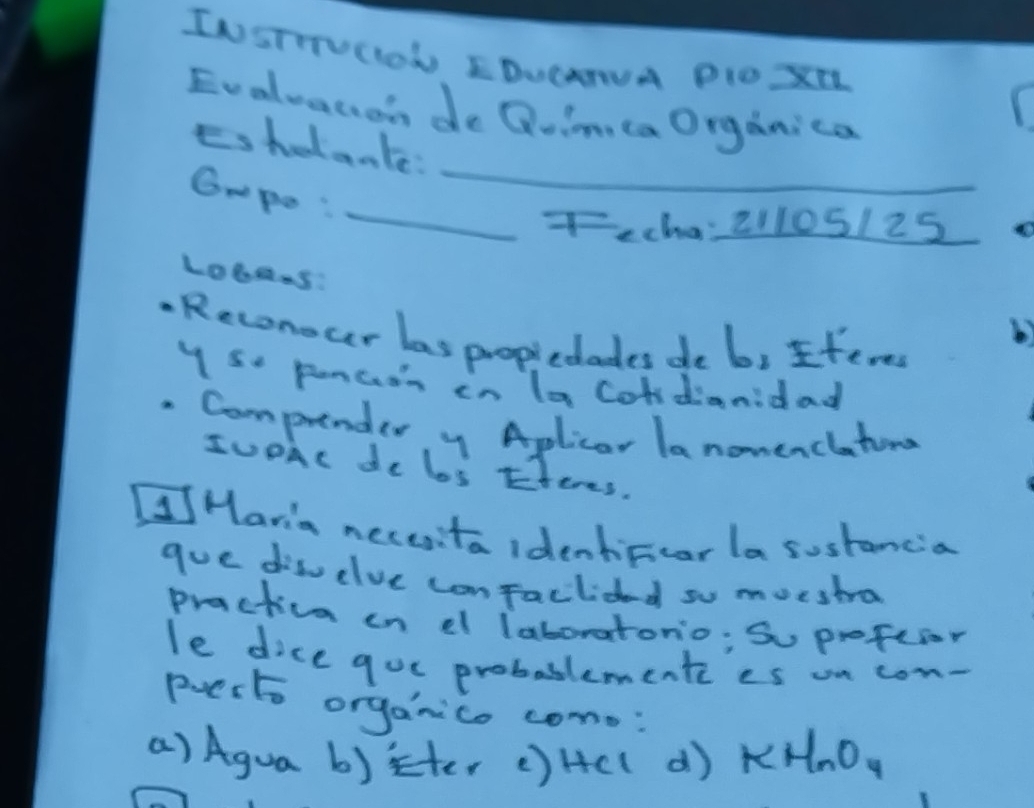 INSTITUCIÓN EDUCATIVA PIO XII
Evaluación de Química Orgánica
Estudiante:
Grupo: Fecha: 21/05/25
LOGROS:
• Reconocer las propiedades de los Éteres
y su función en la Cotidianidad
• Comprender y Aplicar la nomenclatura
IUPAC de los Éteres.
1 María necesita identificar la sustancia
que disuelve con facilidad su muestra
practica en el laboratorio; Su profesor
le dice que probablemente es un com-
puesto orgánico como:
a) Agua b) Éter c) HCl d) KMnO4
b)